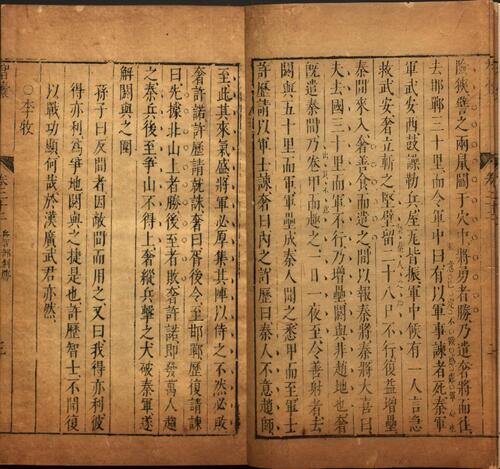 險狹譬之兩鼠鬭于穴中將勇者勝乃遣奢將而往
去邯鄲三十里而令軍中曰有以軍事諫者死秦軍
軍武安西鼓譟勒兵屋瓦皆振軍中候有一人言急
救武安奢立斬之堅壁留二十八日不行復益增壘
秦間來入奢善食而遣之間以報秦將秦將大喜曰
夫去國三十里而軍不行乃增壘閼與非趙地也奢
既遣秦間乃卷甲而趨之二日一夜至令善射者去
閼與五十里而軍軍壘成秦人聞之悉甲而至軍士
許歷請以軍士諫奢曰內之許歷曰秦人不意趙師
至此其來氣盛將軍必厚集其陣以待之不然必敗
奢許諾許歷請就誅奢曰胥後令至邯鄲歷復請諫
曰先據北山上者勝後至者敗奢許諾即發萬人趨
之秦兵後至爭山不得上奢縱兵擊之大破秦軍遂
解閼與之圍
孫子曰反間者因敵間而用之又曰我得亦利彼
得亦利為爭地閼與之捷是也許歷智士不聞復
以戰功顯何哉於漢廣武君亦然
○李牧